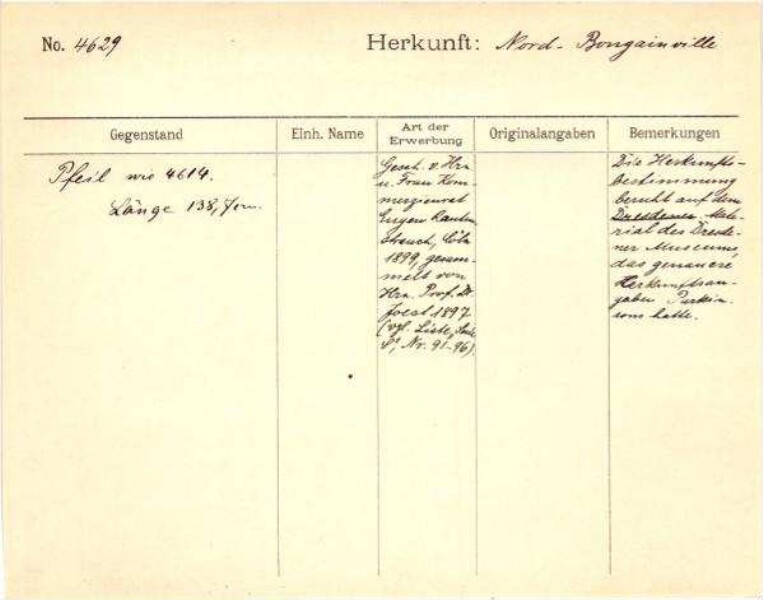 No. 4629
Herkunft: Nord-Bougainville
Gegenstand
Einh. Name
Art der Erwerbung
Originalangaben
Bemerkungen
Pfeil wie 4614.
Länge 138,7cm.
Gesch. v. Hrn
u. Frau Kom-
merzienrat
Eugen Rauten
strauch, Cöln
1899, gesam-
melt von
Hrn. Prof. Dr.
Joest 1897
(vgl. Liste,
Nr. 91-96).
Die Herkunfts-
bestimmung
beruht auf dem
Dresdener Mate-
rial des Dresde-
ner Museums,
das genauere
Herkunftsan-
gaben Parkin-
sons hatte.